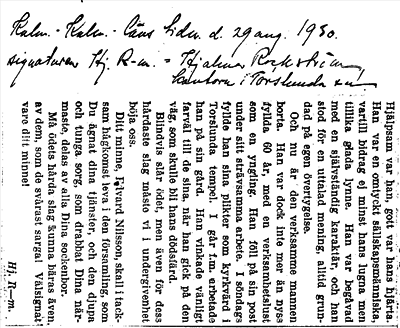 Kalm.-Kalm. läns tidn. d. 29 aug. 1930.
signaturen Hj. R-m. = Hjalmar Rockström,
kantor i Torslunda
Hjälpsam var han, godt var hans hjärta.
Han var en omtyckt sällskapsmänniska,
vartill bidrag ej minst hans lugna men
tillika glada lynne. Han var begåvad
med en självständig karaktär, och han
stod för en uttalad mening, alltid grun-
dad på egen övertygelse.
Och nu är den verksamme mannen
borta. Han blev dock inte mer än nyss
fyllda 60 år, med en verksamhetslust
som en yngling. Han föll på sin post
under sitt strävsamma arbete. I söndags
fyllde han sina plikter som kyrkvärd i
Torslunda tempel. I går f.m. arbetade
han på sin gård. Han vinkade vänligt
farväl till de sina, när han gick på den
väg, som skulle bli hans dödsfärd.
Blindvis slår ödet, men även för dess
hårdaste slag måste vi i undergivenhet
böja oss.
Ditt minne, Edvard Nilsson, skall i tack-
sam hågkomst leva i den församling, som
Du ägnat dina tjänster, och den djupa
och tunga sorg, som drabbat Dina när-
maste, delas av alla Dina sockenbor.
Må ödets hårda slag kunna bäras även
av dem, som de svårast sargat. Välsignat
vare ditt minne!
Hj. R—m.